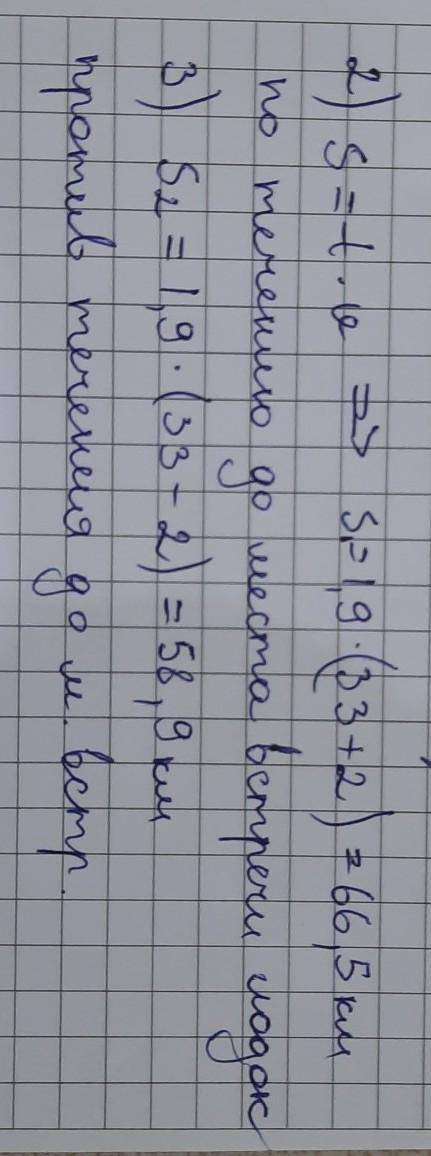 2) S = t · v ⇒ S₁ = 1,9 · (33 + 2) = 66,5 км
по течению до места встречи лодок
3) S₂ = 1,9 · (33 - 2) = 58,9 км
против течения до м. встр.